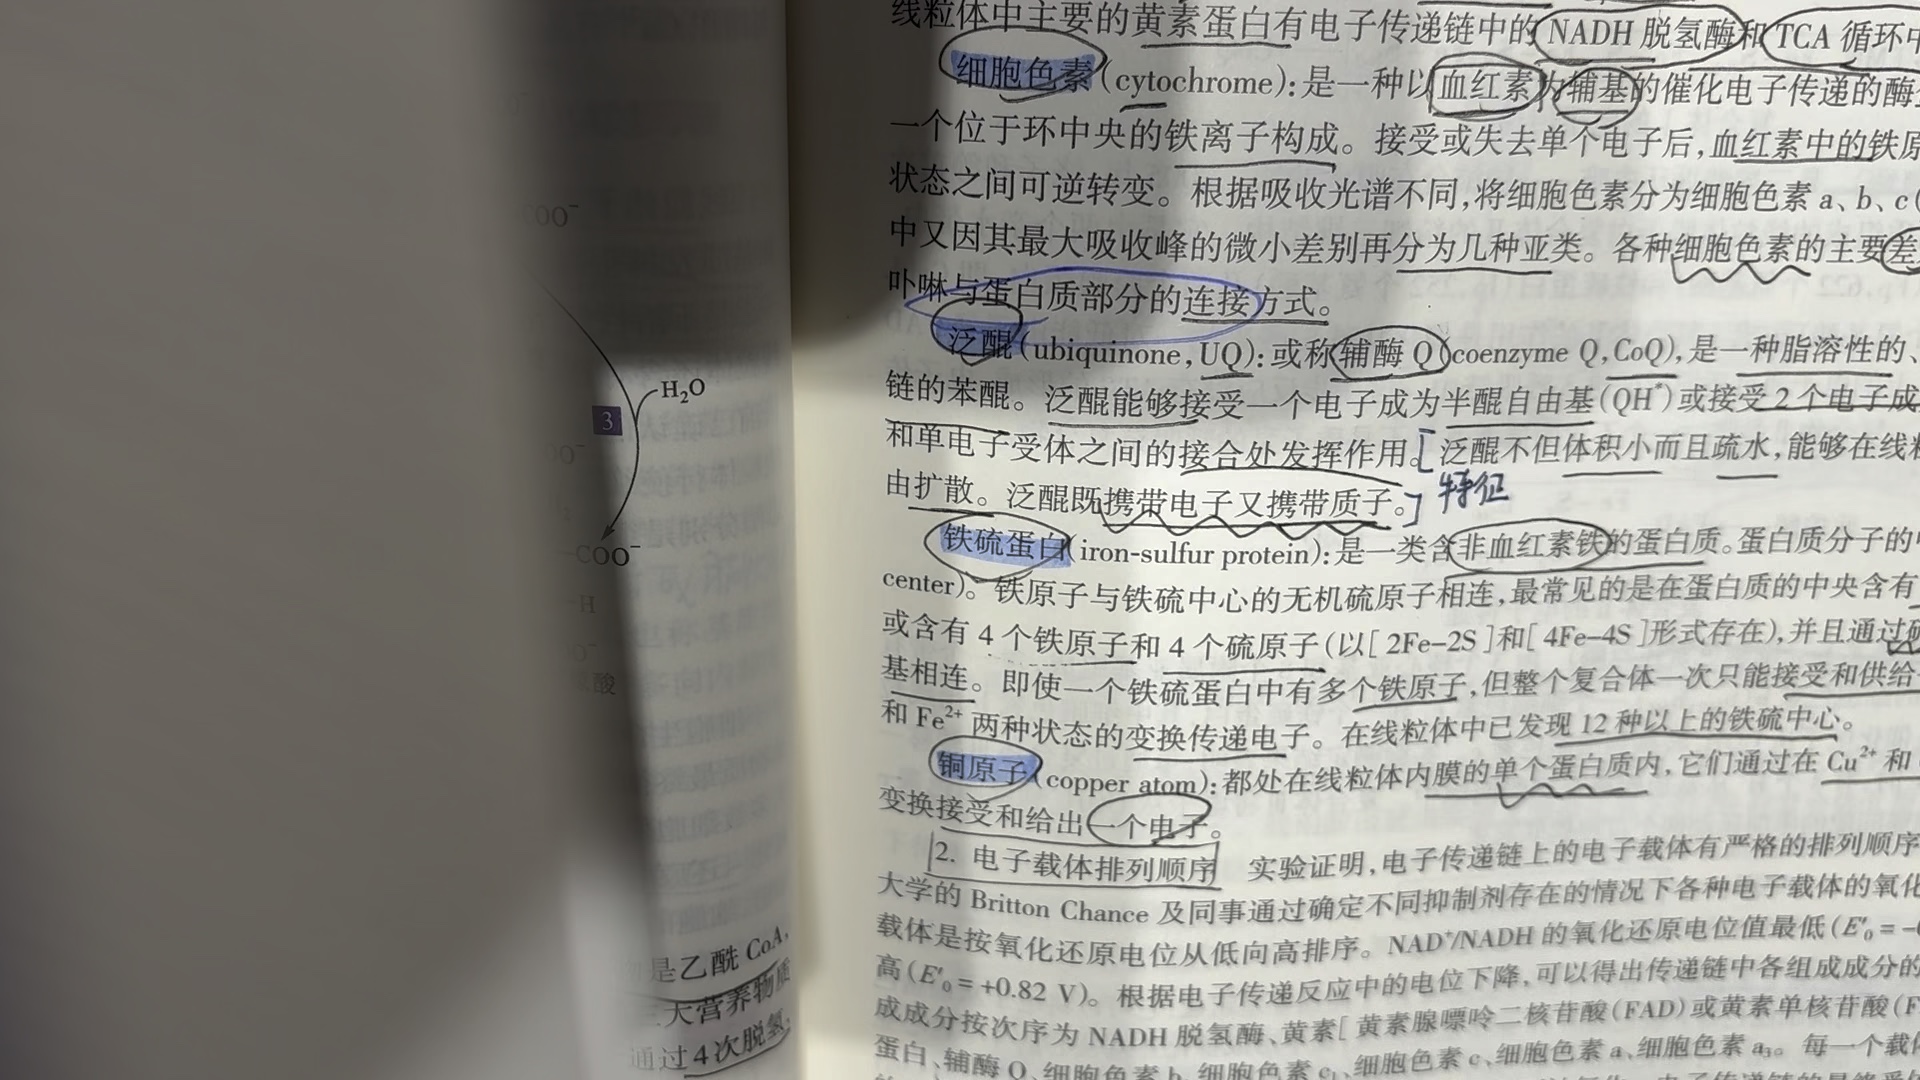 COO⁻
H₂O
3
-COO⁻
-H
酸
是乙酰 CoA,
三大营养物质
通过 4 次脱氢,
线粒体中主要的黄素蛋白有电子传递链中的 NADH 脱氢酶和 TCA 循环中
细胞色素(cytochrome):是一种以血红素为辅基的催化电子传递的酶
一个位于环中央的铁离子构成。接受或失去单个电子后,血红素中的铁原
状态之间可逆转变。根据吸收光谱不同,将细胞色素分为细胞色素 a、b、c(
中又因其最大吸收峰的微小差别再分为几种亚类。各种细胞色素的主要差
卟啉与蛋白质部分的连接方式。
泛醌(ubiquinone,UQ):或称辅酶 Q(coenzyme Q,CoQ),是一种脂溶性的、
链的苯醌。泛醌能够接受一个电子成为半醌自由基(QH*)或接受 2 个电子成
和单电子受体之间的接合处发挥作用。[泛醌不但体积小而且疏水,能够在线粒
由扩散。泛醌既携带电子又携带质子。] 特征
铁硫蛋白(iron-sulfur protein):是一类含非血红素铁的蛋白质。蛋白质分子的中
center)。铁原子与铁硫中心的无机硫原子相连,最常见的是在蛋白质的中央含有
或含有 4 个铁原子和 4 个硫原子(以[ 2Fe-2S ]和[ 4Fe-4S ]形式存在),并且通过硫
基相连。即使一个铁硫蛋白中有多个铁原子,但整个复合体一次只能接受和供给
和 Fe²⁺ 两种状态的变换传递电子。在线粒体中已发现 12 种以上的铁硫中心。
铜原子(copper atom):都处在线粒体内膜的单个蛋白质内,它们通过在 Cu²⁺ 和
变换接受和给出一个电子。
2. 电子载体排列顺序 实验证明,电子传递链上的电子载体有严格的排列顺序
大学的 Britton Chance 及同事通过确定不同抑制剂存在的情况下各种电子载体的氧化
载体是按氧化还原电位从低向高排序。NAD⁺/NADH 的氧化还原电位值最低(E′₀ = -
高(E′₀ = +0.82 V)。根据电子传递反应中的电位下降,可以得出传递链中各组成成分的
成成分按次序为 NADH 脱氢酶、黄素[ 黄素腺嘌呤二核苷酸(FAD)或黄素单核苷酸(F
蛋白、辅酶 Q、细胞色素 b、细胞色素 c₁、细胞色素 c、细胞色素 a、细胞色素 a₃。每一个载体